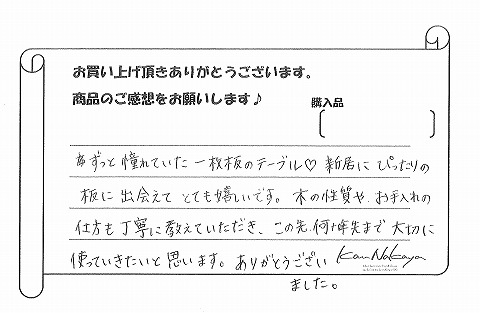 お買い上げ頂きありがとうございます。
商品のご感想をお願いします♪
購入品
ずっと憧れていた一枚板のテーブル♡ 新居にぴったりの
板に出会えてとても嬉しいです。木の性質や、お手入れの
仕方も丁寧に教えていただき、この先何十年先まで大切に
使っていきたいと思います。ありがとうござい
ました。